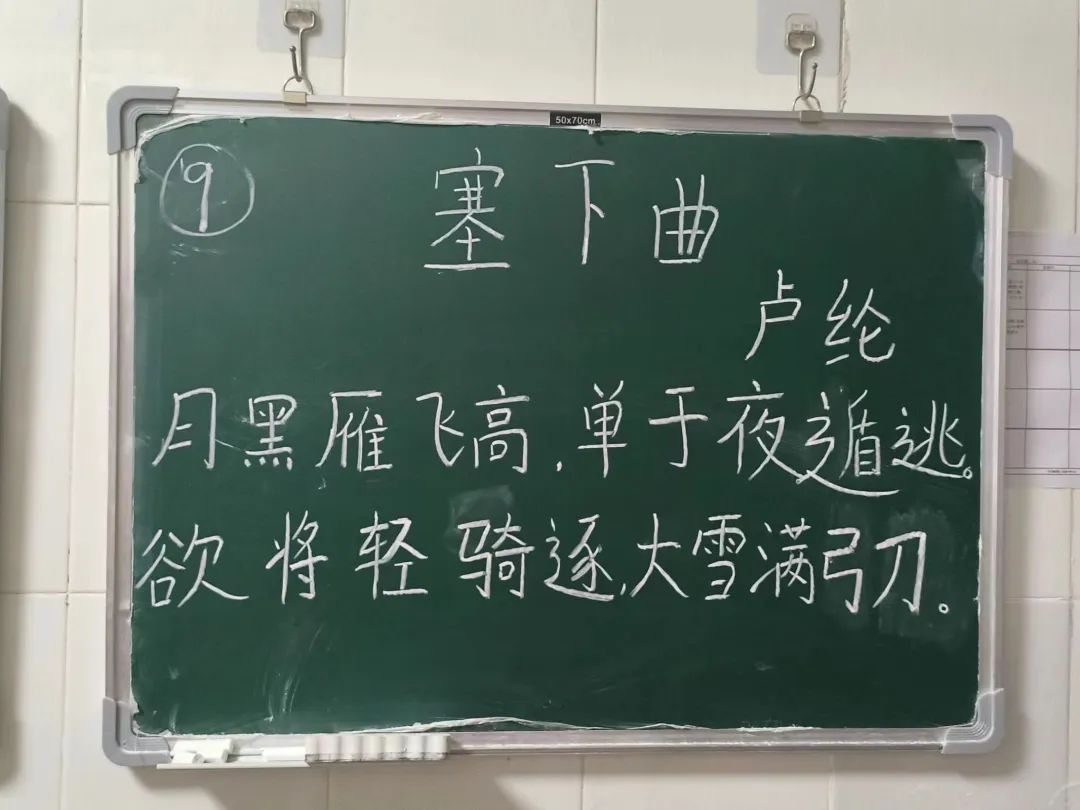 50x70cm
9
塞下曲
卢纶
月黑雁飞高,单于夜遁逃。
欲将轻骑逐,大雪满弓刀。